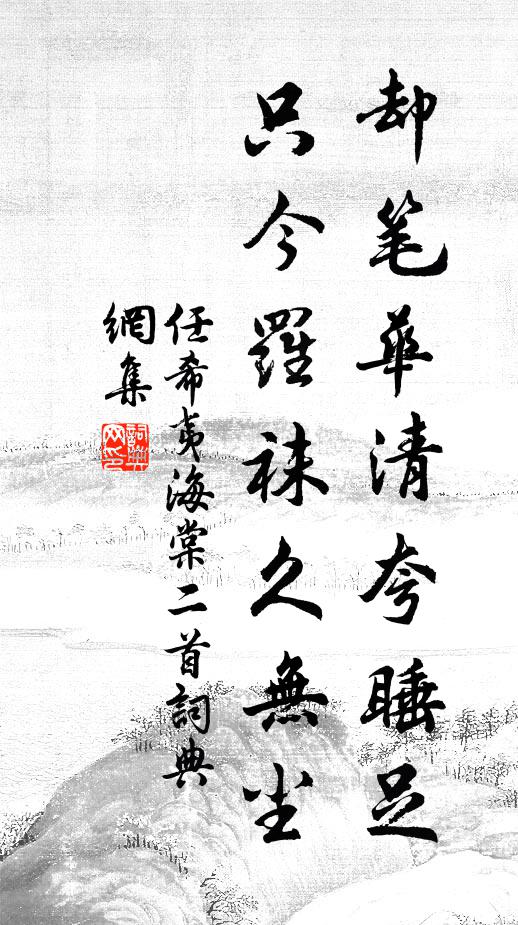 却笔華清夸睡足
只今羅袜久無尘
任希夷海棠二首詞典
網集